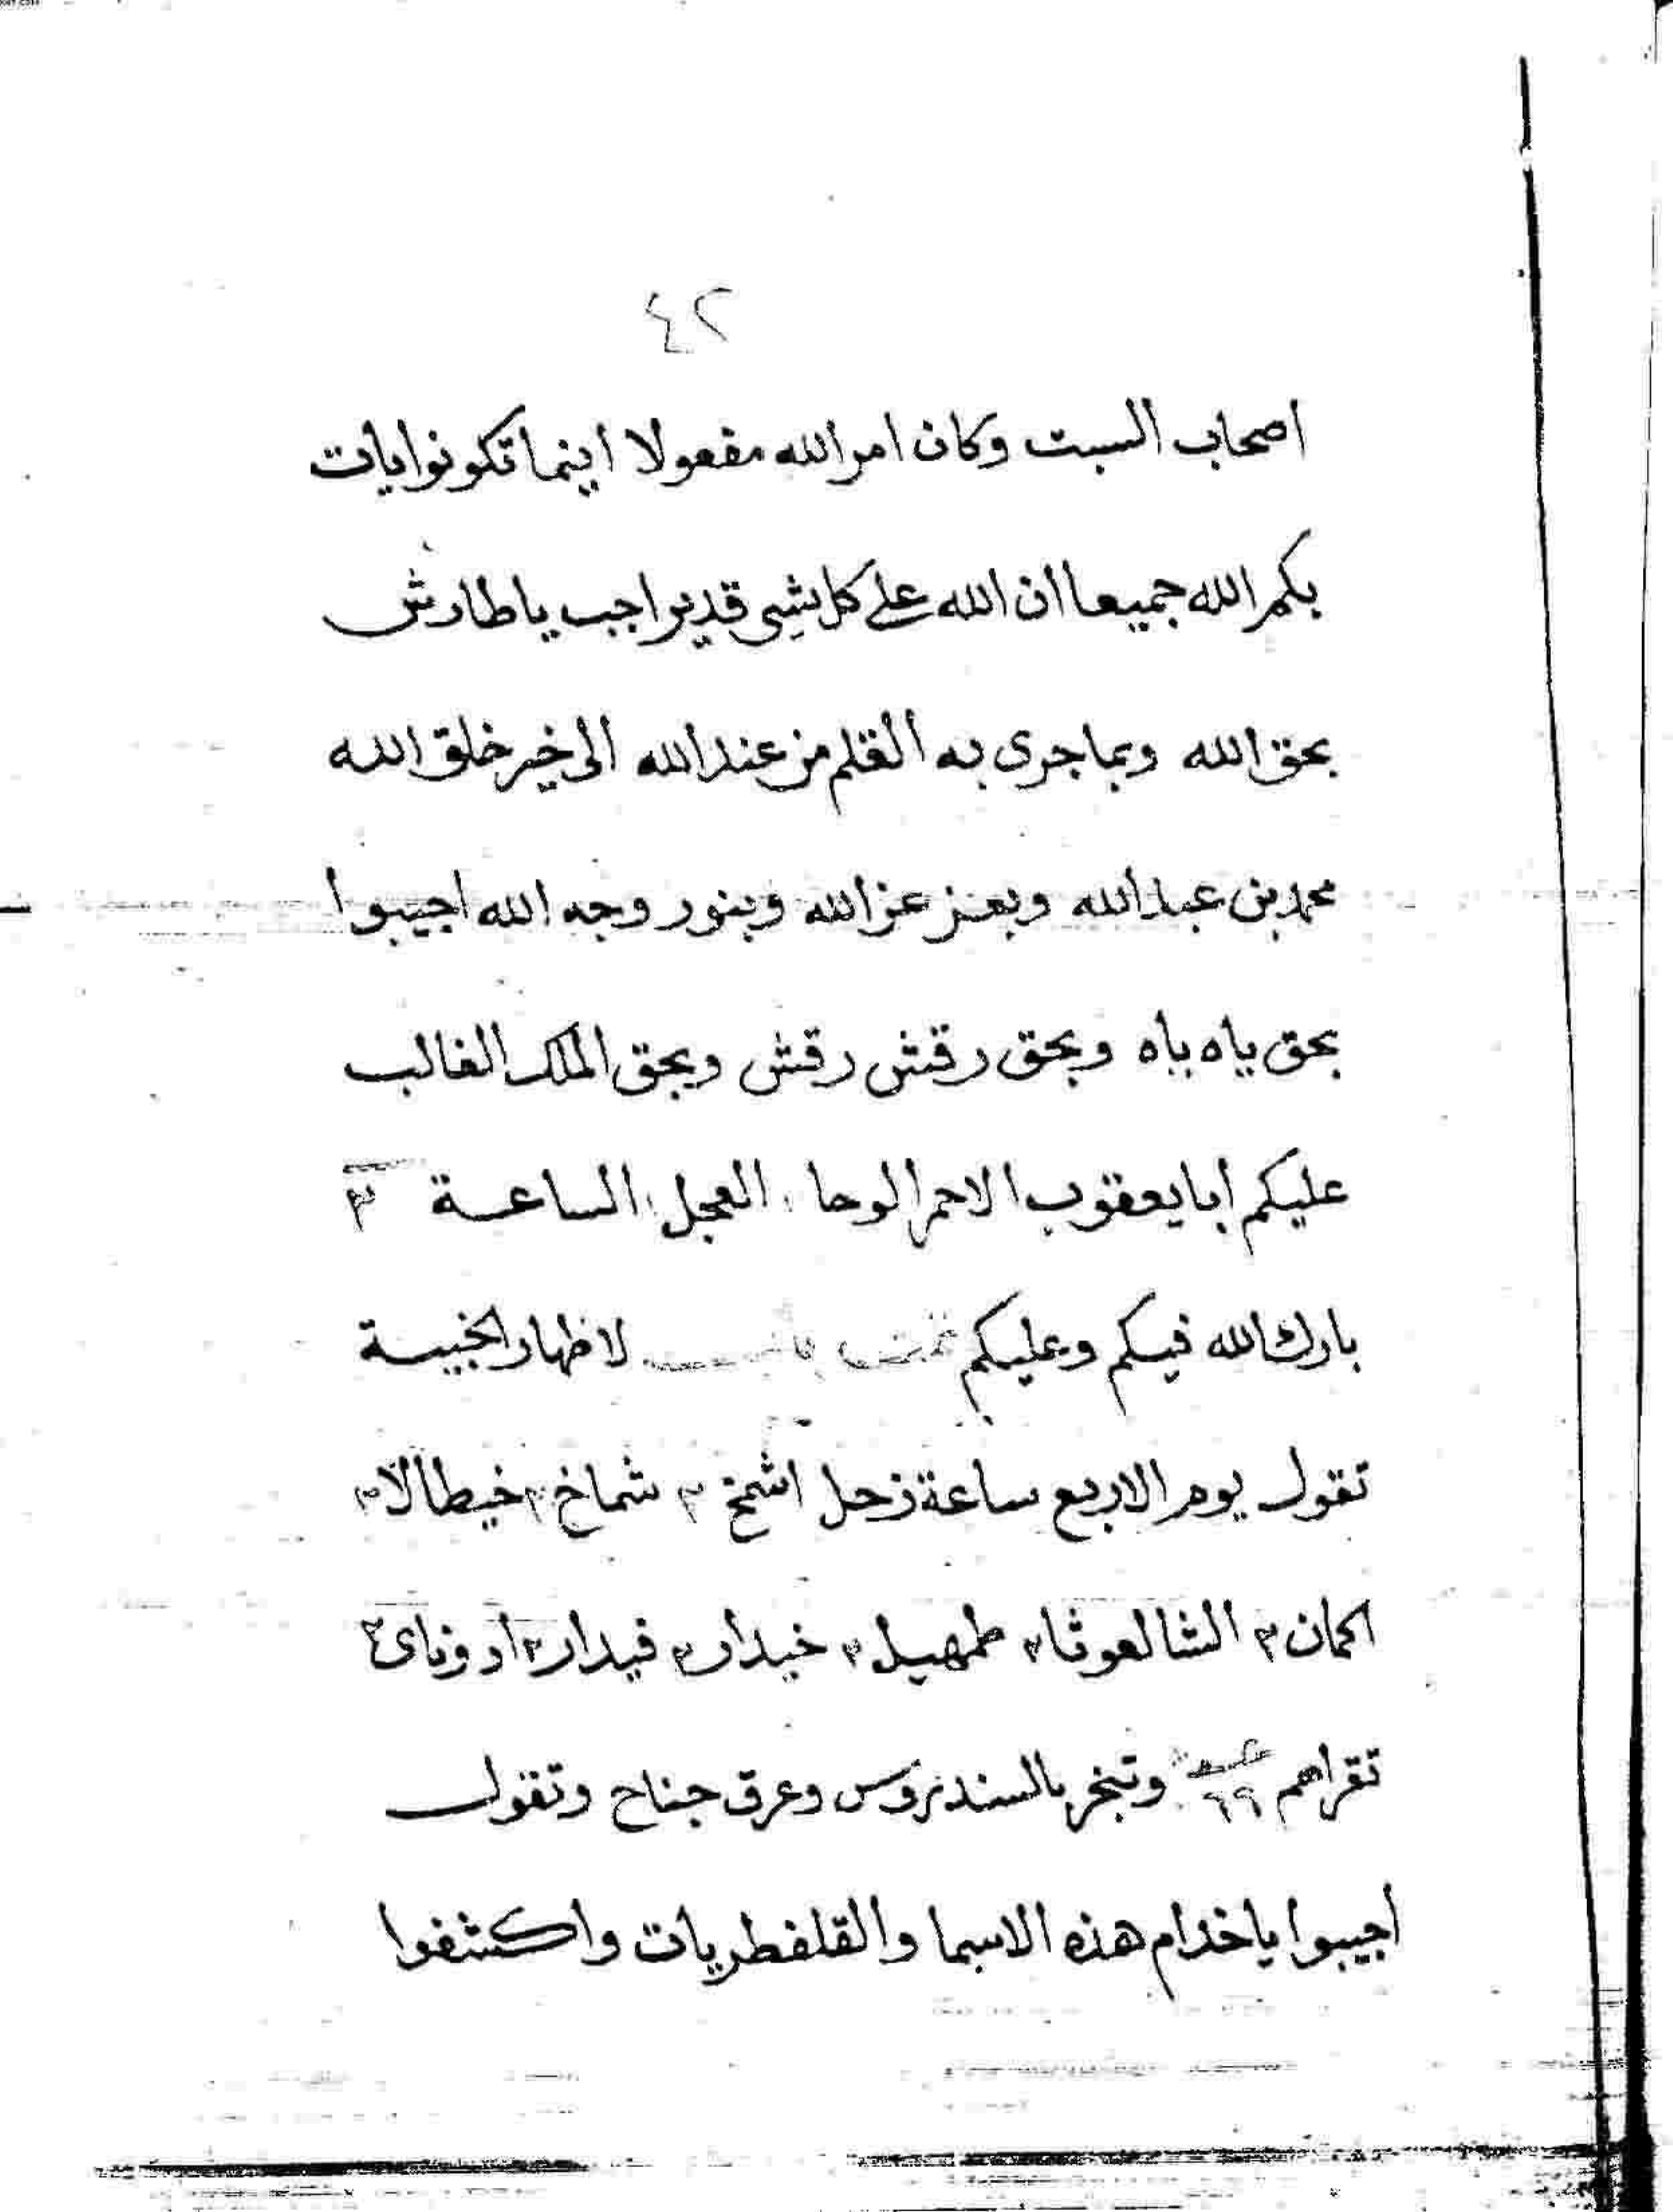 ٤٢
اصحاب السبت وكان امر الله مفعولا اينما تكونوا يات
بكم الله جميعا ان الله على كل شي قدير اجب يا طارش
بحق الله وبما جرى به القلم من عند الله الى خير خلق الله
محمد بن عبد الله وبعز عز الله وبنور وجه الله اجيبوا
بحق ياه ياه وبحق رقش رقش وبحق الملك الغالب
عليكم ابا يعقوب الاحمر الوحا العجل الساعة ٣
بارك الله فيكم وعليكم لاظهار الخبيبة
تقول يوم الاربع ساعة زحل اشمخ ٣ شماخ ٣ خيطالا ٣
اكمان ٣ الشالعوثا ٣ طمهيل ٣ خيدار ٣ قيدار ٣ ادوناى ٣
تقراهم ٦٩ وتبخر بالسندروس وعرق جناح وتقول
اجيبوا يا خدام هذه الاسما والقلفطريات واكشفوا